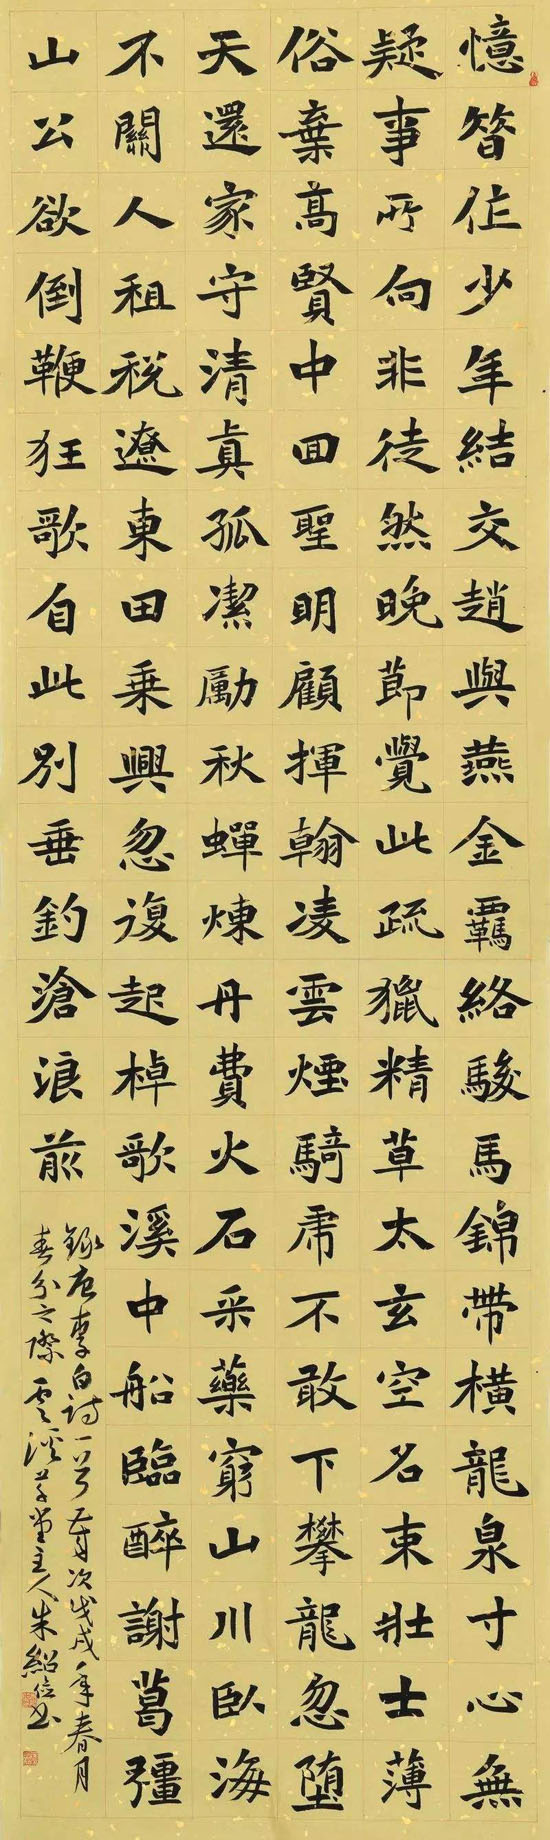 憶昔作少年結交趙與燕金羈絡駿馬錦帶橫龍泉寸心無
疑事所向非徒然晚節覺此疏獵精草太玄空名束壯士薄
俗棄高賢中回聖明顧揮翰凌雲煙騎虎不敢下攀龍忽墮
天還家守清真孤潔勵秋蟬煉丹費火石采藥窮山川臥海
不關人租稅遼東田乘興忽復起棹歌溪中船臨醉謝葛彊
山公欲倒鞭狂歌自此別垂釣滄浪前
錄唐李白詩一首歲次戊戌年春月
春分之際雲溪草堂主人朱紹位書